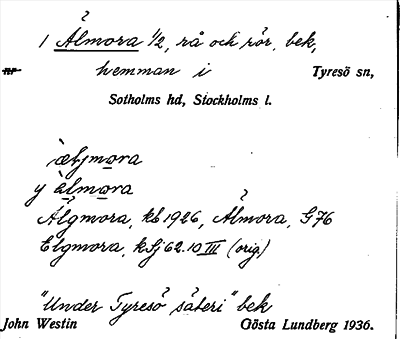 1 Älmora 1/2, rå och rör, bek,
hemman i Tyresö sn,
Sotholms hd, Stockholms l.
y älmora
Älgmora, kb 1926, Älmora, G76
Elgmora, kSj 62.10 III (orig.)
"Under Tyresö säteri" bek
John Westin Gösta Lundberg 1936.